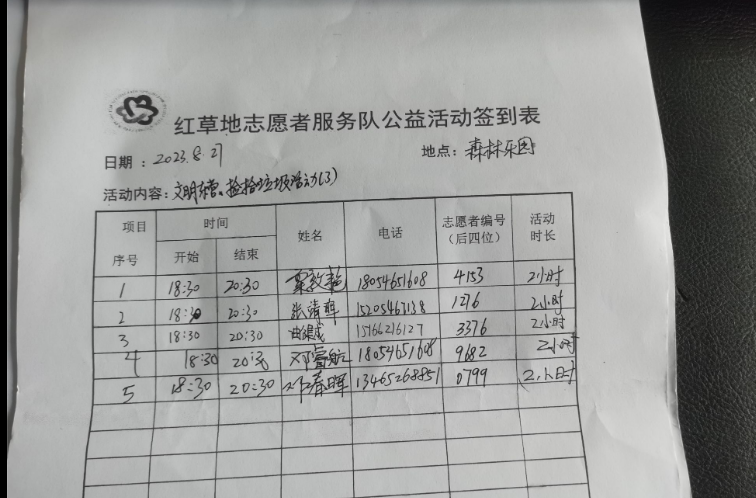 红草地志愿者服务队公益活动签到表
日期：2023.8.27 地点：森林乐园
活动内容：文明东营、捡拾垃圾活动(3)
项目 时间 姓名 电话 志愿者编号（后四位） 活动时长
序号 开始 结束
1 18:30 20:30 18054651608 4153 2小时
2 18:30 20:30 张清 15205463138 1276 2小时
3 18:30 20:30 15766216127 3376 2小时
4 18:30 20:30 邓睿航 18054651608 9682 2小时
5 18:30 20:30 邓春晖 13465268851 0799 2小时